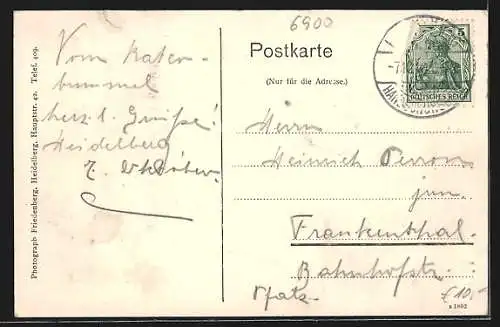 6900
Postkarte
(Nur für die Adresse.)
5
DEUTSCHES REICH
Vom Kater-
bummel
herzl. Grüße!
Heidelberg
7. Oktober
Herrn
Heinrich Perron
jun.
Frankenthal
Bahnhofstr.
Pfalz.
€10.-
s 1892
Photograph Friedenberg, Heidelberg, Hauptstr. 42. Telef. 409.